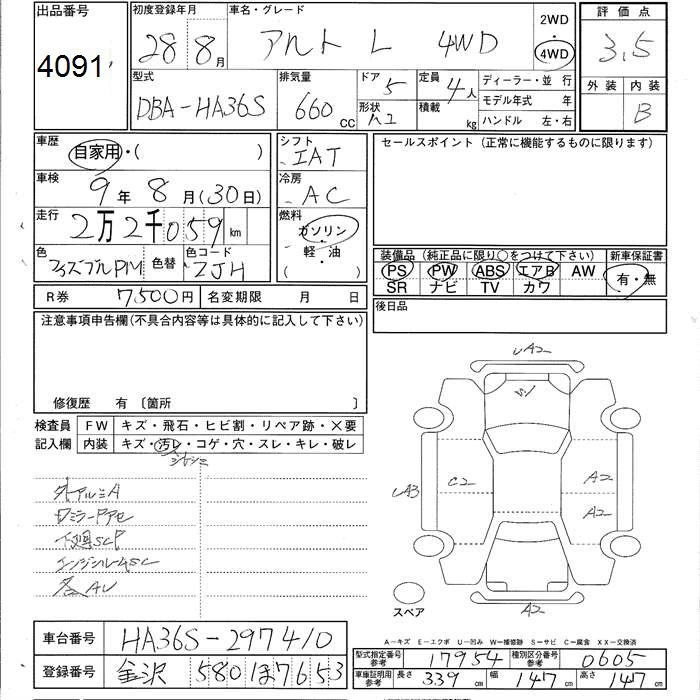 出品番号
4091
初度登録年月
28 8月
車名・グレード
アルト L 4WD
2WD
・
4WD
評価点
3.5
外装 内装
B
型式
DBA-HA36S
排気量
660 CC
ドア
5
形状
定員
4人
積載
kg
ディーラー・並行
モデル年式 年
ハンドル 左・右
車歴
自家用・( )
車検
9年 8月(30日)
走行
2万2千059km
色
色替
色コード
ZJH
シフト
IAT
冷房
AC
燃料
ガソリン
軽・油
( )
セールスポイント (正常に機能するものに限ります)
装備品 (純正品に限り○をつけて下さい)
PS PW ABS エアB AW
SR ナビ TV カワ
新車保証書
有・無
R券 7,500円
名変期限 月 日
後日品
注意事項申告欄(不具合内容等は具体的に記入して下さい)
修復歴 有 〔箇所 〕
検査員
記入欄
FW キズ・飛石・ヒビ割・リペア跡・×要
内装 キズ・汚レ・コゲ・穴・スレ・キレ・破レ
外アルミA
下廻SCP
エンジンルームSC
各AU
UA2
W1
UA3
C2
A2
A2
A2
スペア
A-キズ E-エクボ U-凹み W-補修跡 S-サビ C-腐食 XX-交換済
車台番号 HA36S-297410
登録番号 金沢 580 ほ 7653
型式指定番号
参考
17954
種別区分番号
参考
0605
車庫証明用
参考
長さ 339cm 幅 147cm 高さ 147cm